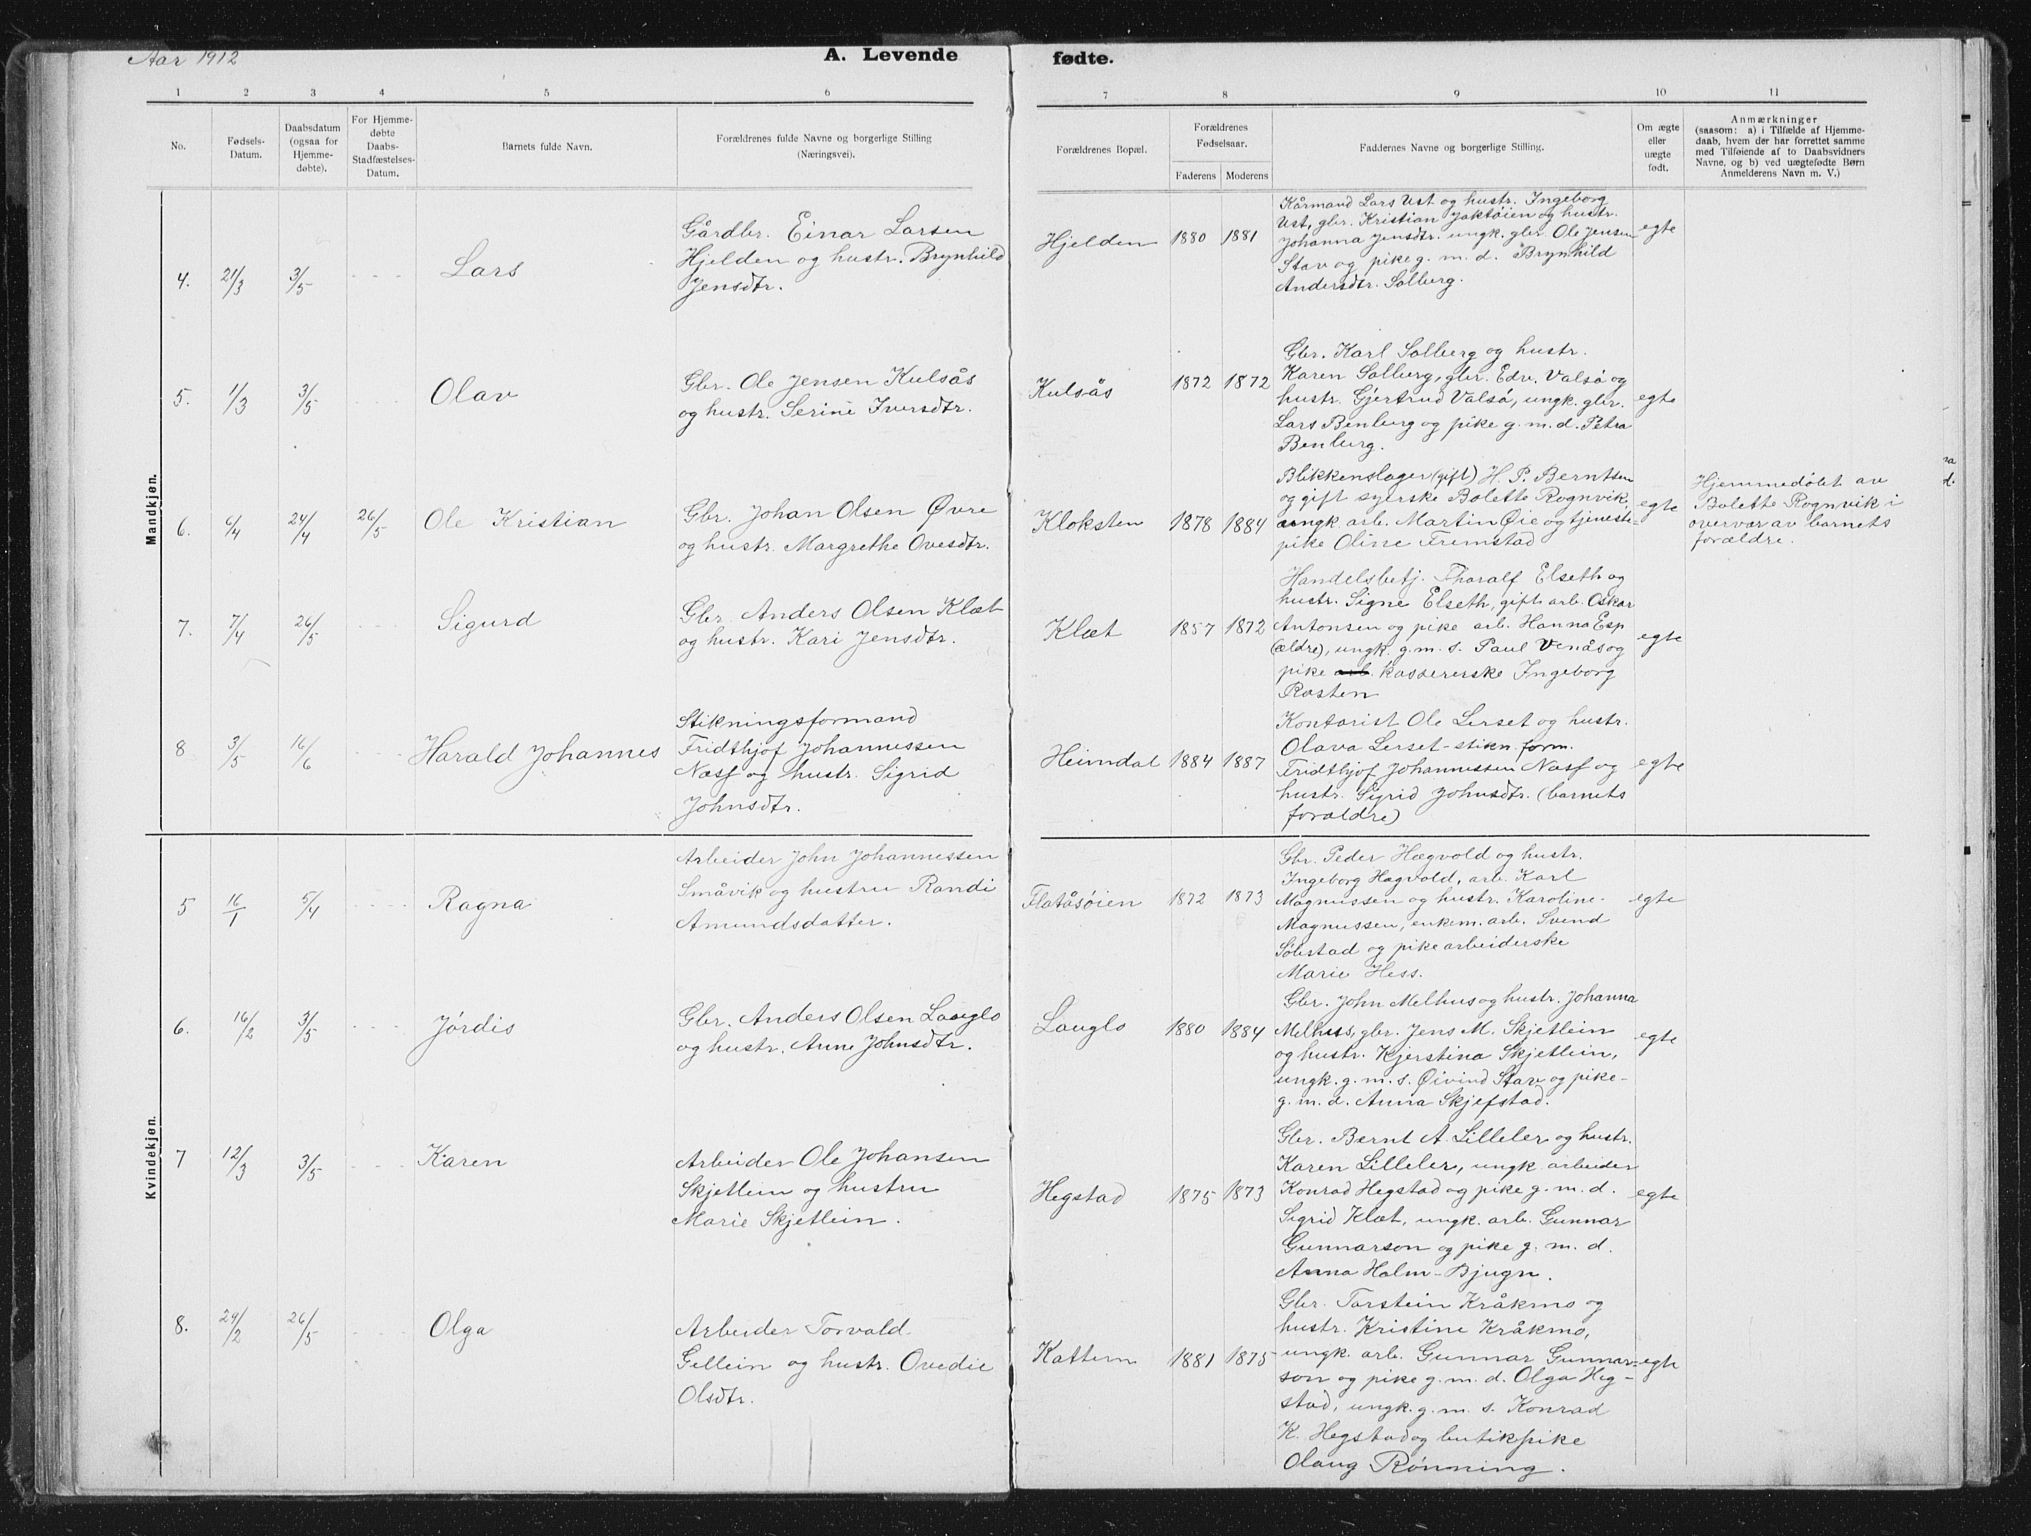 Aar 1912
A. Levende fødte.
1 2 3 4 5 6 7 8 9 10 11
No.
Fødsels-
Datum.
Daabsdatum
(ogsaa for
Hjemme-
døbte).
For Hjemme-
døbte
Daabs-
Stadfæstelses-
Datum.
Barnets fulde Navn.
Forældrenes fulde Navne og borgerlige Stilling
(Næringsvei).
Forældrenes Bopæl.
Forældrenes
Fødselsaar.
Faderens Moderens
Faddernes Navne og borgerlige Stilling.
Om ægte
eller
uægte
født.
Anmærkninger
(saasom: a) i Tilfælde af Hjemme-
daab, hvem der har forrettet samme
med Tilføiende af to Daabsvidners
Navne, og b) ved uægtefødte Børn
Anmelderens Navn m. V.)
Mandkjøn.
4. 21/3 3/5 Lars
Gårdbr. Einar Larsen
Hjelden og hustr. Brynhild
Jensdtr.
Hjelden 1880 1881
Kårmand Lars Ust og hustr. Ingeborg
Ust, gbr. Kristian Jaktøien og hustr.
Johanna Jensdtr. ungk. gbr. Ole Jensen
Stav og pike g. m. d. Brynhild
Andersdtr. Solberg.
egte
5. 1/3 3/5 Olav
Gbr. Ole Jensen Kulsås
og hustr. Serine Iversdtr.
Kulsås 1872 1872
Gbr. Karl Solberg og hustr.
Karen Solberg, gbr. Edv. Valsø og
hustr. Gjertrud Valsø, ungk. gbr.
Lars Benberg og pike g. m. d. Petra
Benberg.
egte
6. 6/4 24/4 26/5 Ole Kristian
Gbr. Johan Olsen Øvre
og hustr. Margrethe Ovesdtr.
Kloksten 1878 1884
Blikkenslager (gift) H. P. Berntsen
og gift syerske Bolette Rognvik,
ungk. arb. Martin Øie og tjeneste-
pike Oline Fremstad
egte
Hjemmedøbt av
Bolette Rognvik i
overvær av barnets
forældre.
7. 7/4 26/5 Sigurd
Gbr. Anders Olsen Klæt
og hustr. Kari Jensdtr.
Klæt 1857 1872
Handelsbetj. Tharalf Elseth og
hustr. Signe Elseth, gift arb. Oskar
Antonsen og pike arb. Hanna Esp
(ældre), ungk. g. m. s. Paul Venås og
pike arb. kassererske Ingeborg
Rosten
egte
8 3/5 16/6 Harald Johannes
Stikningsformand
Fridthjof Johannessen
Næsf og hustr. Sigrid
Johnsdtr.
Heimdal 1884 1887
Kontorist Ole Lerset og hustr.
Olava Lerset - stikn. form.
Fridthjof Johannessen Næsf og
hustr. Sigrid Johnsdtr. (barnets
forældre)
egte
Kvindekjøn.
5 16/1 5/4 Ragna
Arbeider John Johannessen
Småvik og hustru Randi
Amundsdatter.
Flatåsøien 1872 1873
Gbr. Peder Hægvold og hustr.
Ingeborg Hægvold, arb. Karl
Magnussen og hustr. Karoline
Magnussen, enkem. arb. Svend
Søbstad og pike arbeiderske
Marie Hess.
egte
6. 16/2 3/5 Jørdis
Gbr. Anders Olsen Lauglo
og hustr. Anne Johnsdtr.
Lauglo 1880 1884
Gbr. John Melhus og hustr. Johanna
Melhuss, gbr. Jens M. Skjetlein
og hustr. Kjerstina Skjetlein,
ungk. g. m. s. Øivind Stav og pike-
g. m. d. Anna Skjefstad.
egte
7 12/3 3/5 Karen
Arbeider Ole Johansen
Skjetlein og hustru
Marie Skjetlein.
Hegstad 1875 1873
Gbr. Bernt A. Lilleler og hustr.
Karen Lilleler, ungk. arbeider
Konrad Hegstad og pike g. m. d.
Sigrid Klæt, ungk. arb. Gunnar
Gunnarson og pike g. m. d.
Anna Holm-Bjugn.
egte
8. 24/2 26/5 Olga
Arbeider Torvald
Gellein og hustr. Ovedie
Olsdtr.
Kattem 1881 1875
Gbr. Torstein Kråkmo og
hustr. Kristine Kråkmo,
ungk. arb. Gunnar Gunnar-
son og pike g. m. d. Olga Heg-
stad, ungk. g. m. s. Konrad
K. Hegstad og butikpike
Olaug Rønning.
egte